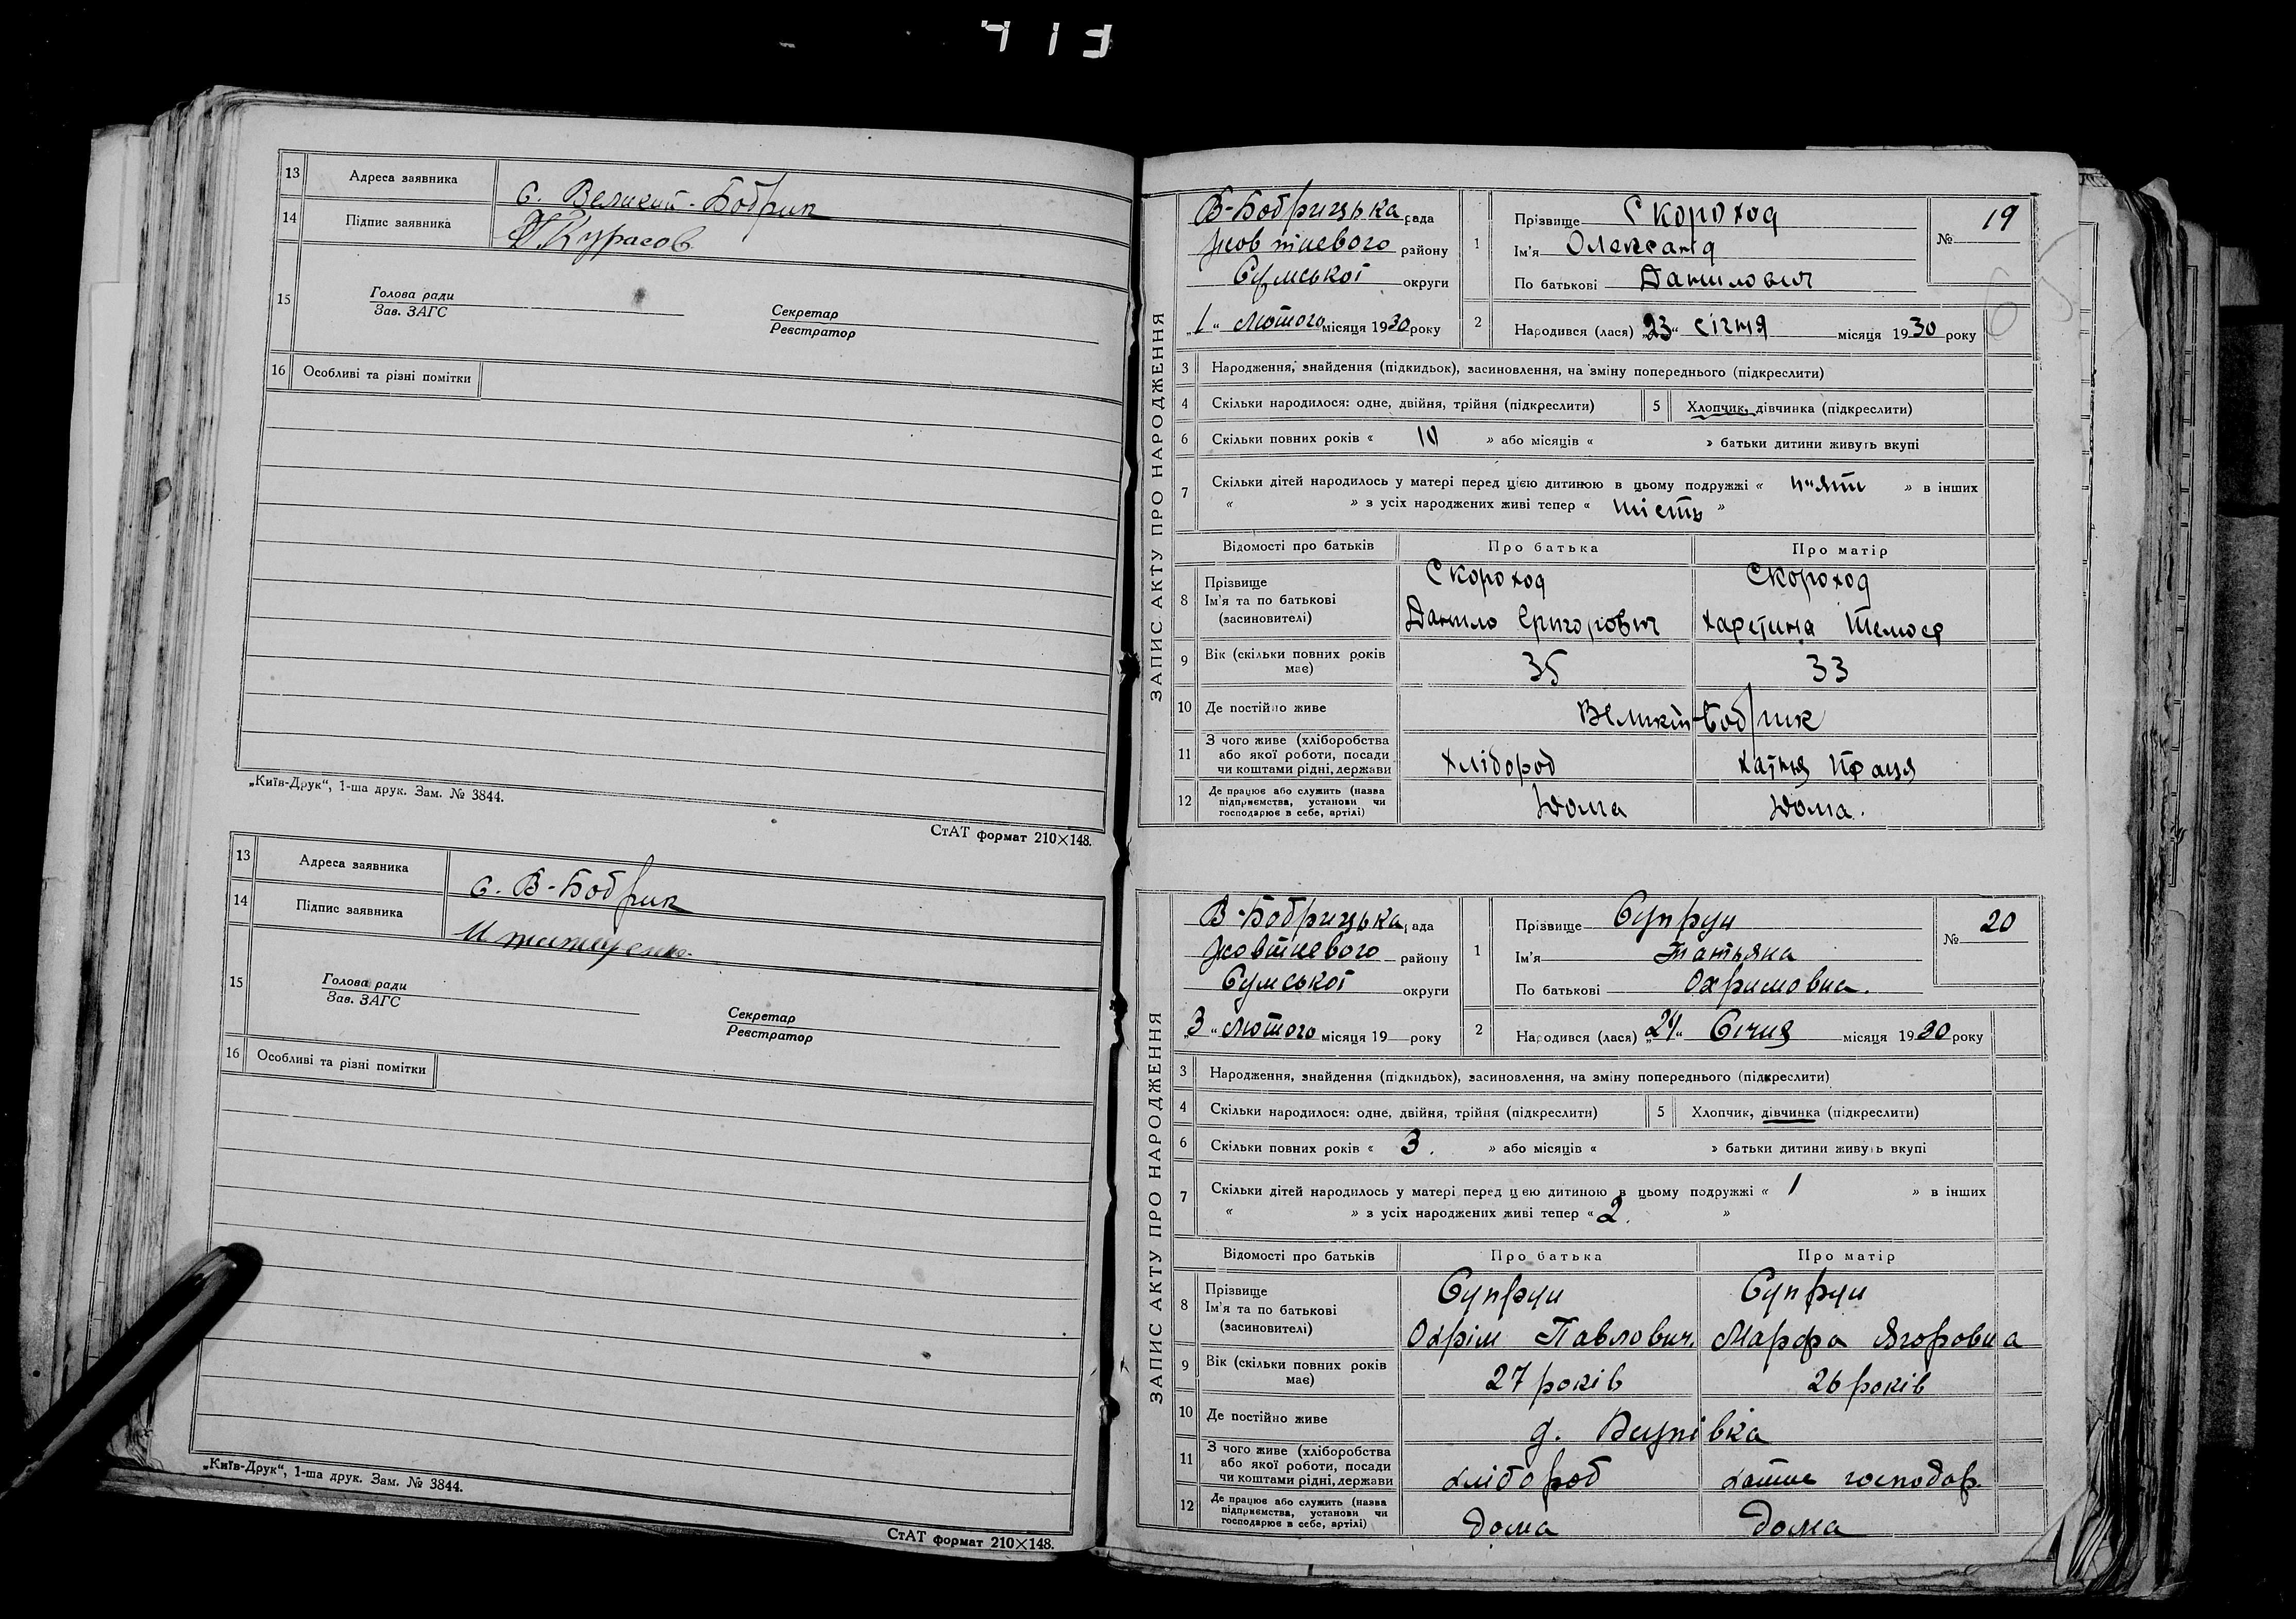 413
13 Адреса заявника с. Великий-Бобрик
14 Підпис заявника Курасов
15 Голова ради
Зав. ЗАГС
Секретар
Реєстратор
16 Особливі та різні помітки
„Київ-Друк“, 1-ша друк. Зам. № 3844.
СтАТ формат 210×148.
13 Адреса заявника с. В-Бобрик
14 Підпис заявника
15 Голова ради
Зав. ЗАГС
Секретар
Реєстратор
16 Особливі та різні помітки
„Київ-Друк“, 1-ша друк. Зам. № 3844.
СтАТ формат 210×148.
ЗАПИС АКТУ ПРО НАРОДЖЕННЯ
В-Бобрицька рада
Жовтневого району
Сумської округи
„1“ Лютого місяця 1930 року
1 Прізвище Скороход
Ім'я Олександ
По батькові Данилович
№ 19
65
2 Народився (лася) „23“ січня місяця 1930 року
3 Народження, знайдення (підкидьок), засиновлення, на зміну попереднього (підкреслити)
4 Скільки народилося: одне, двійня, трійня (підкреслити) 5 Хлопчик, дівчинка (підкреслити)
6 Скільки повних років « 10 » або місяців « » батьки дитини живуть вкупі
7 Скільки дітей народилось у матері перед цією дитиною в цьому подружжі « п'яти » в інших
« » з усіх народжених живі тепер « шість »
Відомості про батьків Про батька Про матір
8 Прізвище Скороход Скороход
Ім'я та по батькові
(засновителі) Данило Григорович Харетина
9 Вік (скільки повних років має) 35 33
10 Де постійно живе Великий-Бобрик
11 З чого живе (хліборобства
або якої роботи, посади
чи коштами рідні, держави Хлібород хатня праця
12 Де працює або служить (назва
підприємства, установи чи
господарює в себе, артілі) Дома Дома.
ЗАПИС АКТУ ПРО НАРОДЖЕННЯ
В-Бобрицька рада
Жовтневого району
Сумської округи
„3“ Лютого місяця 19 року
1 Прізвище Супрун
Ім'я Татьяна
По батькові Охримовна.
№ 20
2 Народився (лася) „29“ Січня місяця 1930 року
3 Народження, знайдення (підкидьок), засиновлення, на зміну попереднього (підкреслити)
4 Скільки народилося: одне, двійня, трійня (підкреслити) 5 Хлопчик, дівчинка (підкреслити)
6 Скільки повних років « 3. » або місяців « » батьки дитини живуть вкупі
7 Скільки дітей народилось у матері перед цією дитиною в цьому подружжі « 1 » в інших
« » з усіх народжених живі тепер « 2. »
Відомості про батьків Про батька Про матір
8 Прізвище Супрун Супрун
Ім'я та по батькові
(засиновителі) Охрім Павлович. Марфа Ягоровна
9 Вік (скільки повних років має) 27 років 26 років
10 Де постійно живе
11 З чого живе (хліборобства
або якої роботи, посади
чи коштами рідні, держави хлібороб хатне господар.
12 Де працює або служить (назва
підприємства, установи чи
господарює в себе, артілі) дома дома